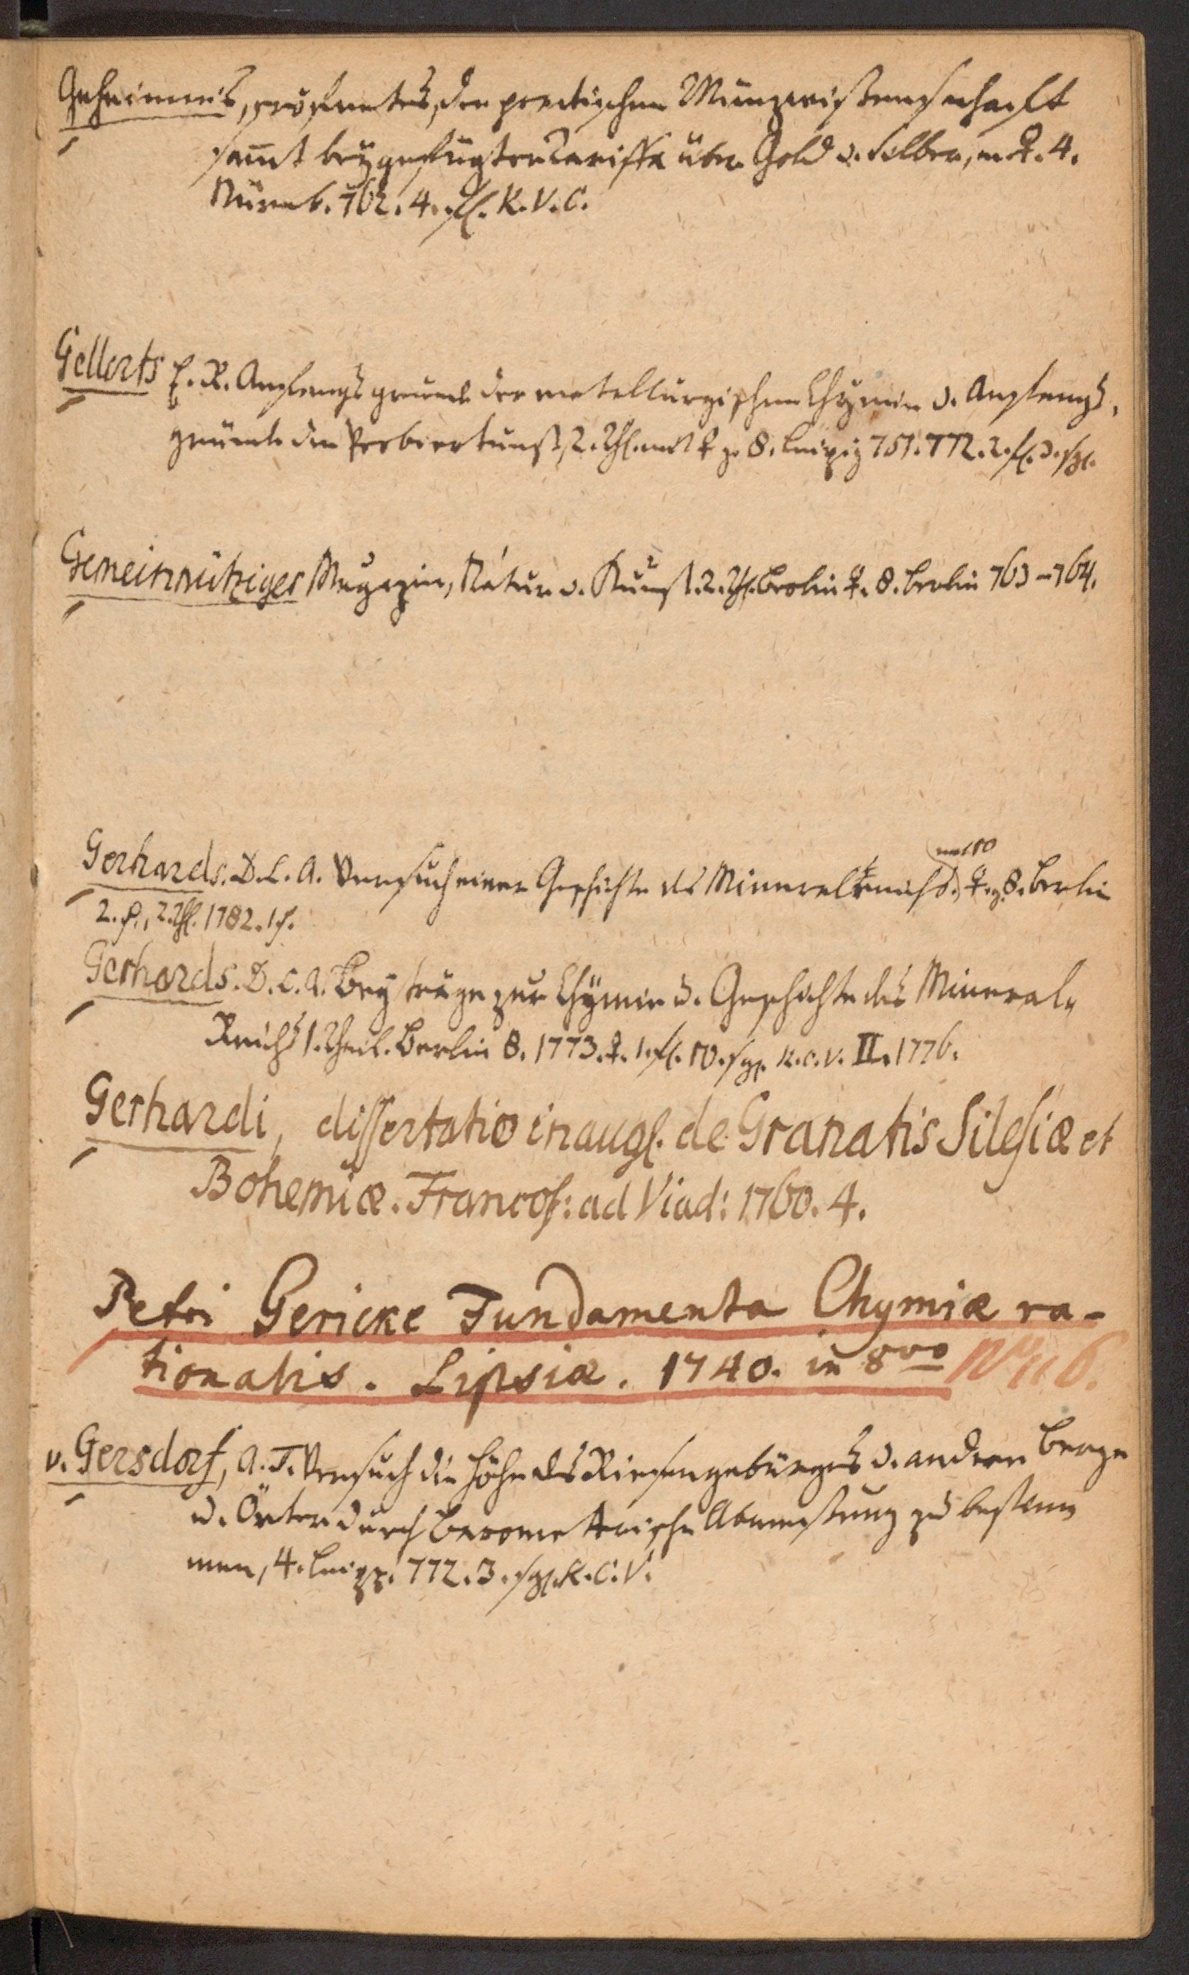 Geheimnis, eröfnetes, der practischen Münzwissenschafft
samt beygefügter Tariffa über Gold u. Silber, m. ♀. 4.
Nürnb. 762. 4. fl. K. V. C.
Gellerts C. E. Anfangsgründe der metallurgischen Chymie u. Anfangs-
gründe der Probierkunst, 2. Thl. mit ♀ gr. 8. Leipzig 751. 772. 2. fl. 3. sgl.
Gemeinnütziges Magazin, Natur u. Kunst. 2. Thl. Berlin ♀. 8. Berlin 763-764.
Gerhards. D. C. A. Versuch einer Geschichte des Mineralreichs. ♀. g. 8. Berlin
2. f., 2. Thl. 1782. 1 f.
Gerhards. D. C. A. Beyträge zur Chymie u. Geschichte des Mineral-
Reichs 1. Theil. Berlin 8. 1773. ♀. 1. fl. 10. sgl. K. C. V. II. 1776.
Gerhardi, dissertatio inaugl. de Granatis Silesiæ et
Bohemiæ. Francof: ad Viad: 1760. 4.
Petri Gericke Fundamenta Chymiæ ra-
tionalis. Lipsiæ. 1740. in 8vo No 116.
v. Gersdorf, A. T. Versuch die Höhe des Riesengebürges u. andern Berge
u. Örter durch barometrische Abmessung zu bestim
men, 4. Leipz. 772. 3. sgl. K. C. V.